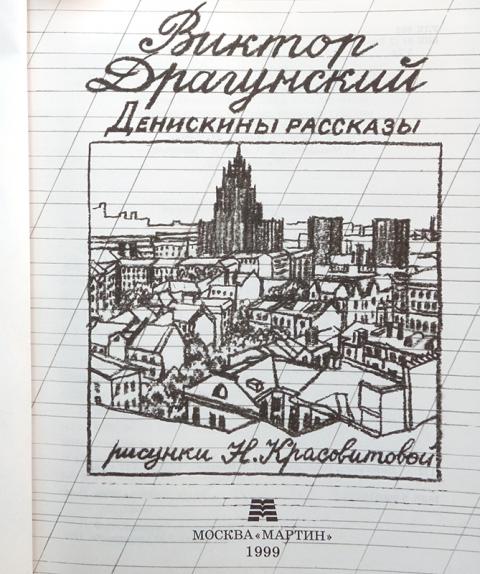 Виктор
Драгунский
Денискины рассказы
рисунки Н. Красовитовой
МОСКВА «МАРТИН»
1999